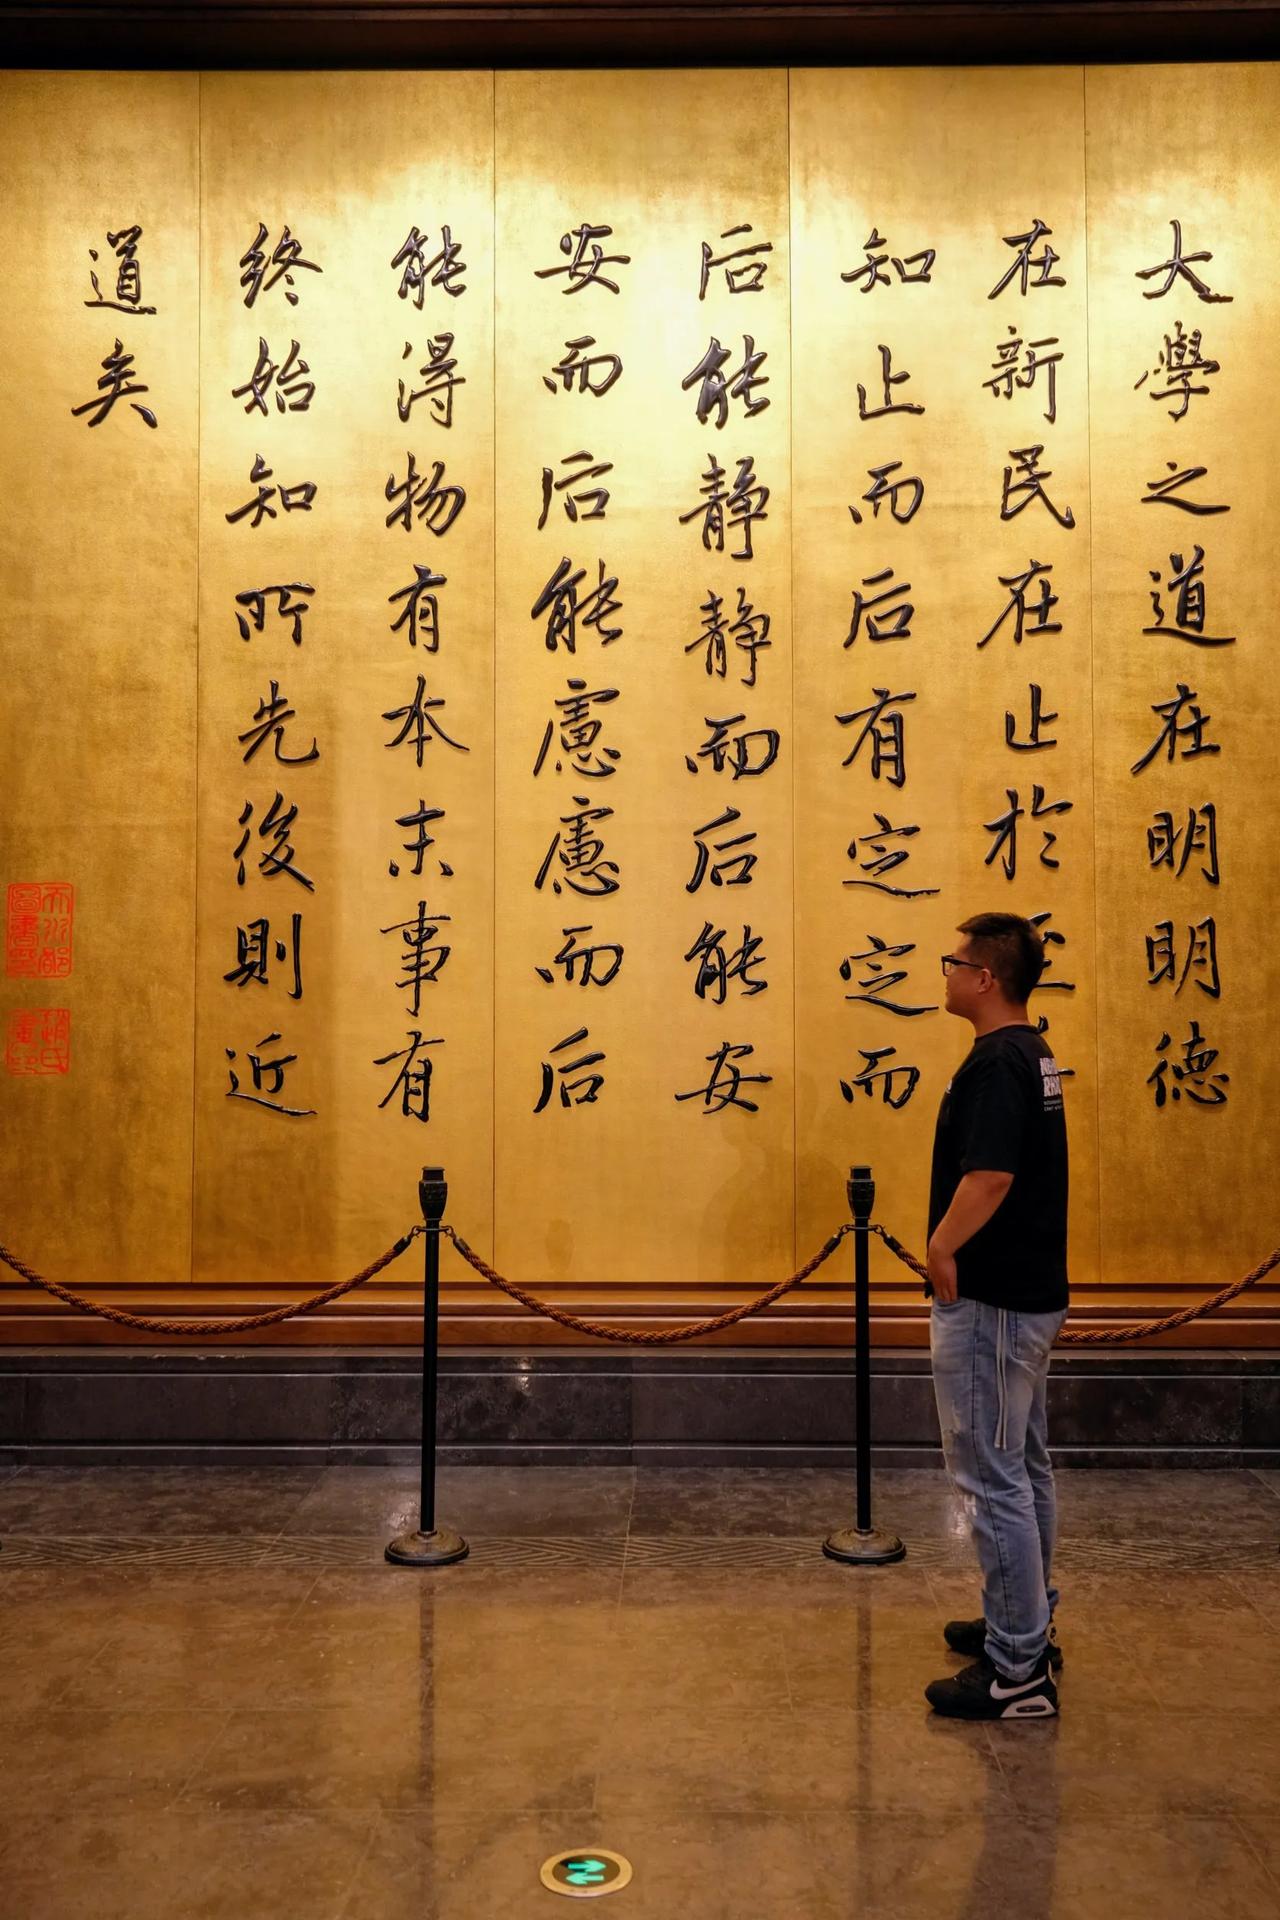 大學之道在明明德
在新民在止於至
知止而后有定定而
后能静静而后能安
安而后能慮慮而后
能得物有本末事有
終始知所先後則近
道矣
天水郡圖書印
趙氏書印